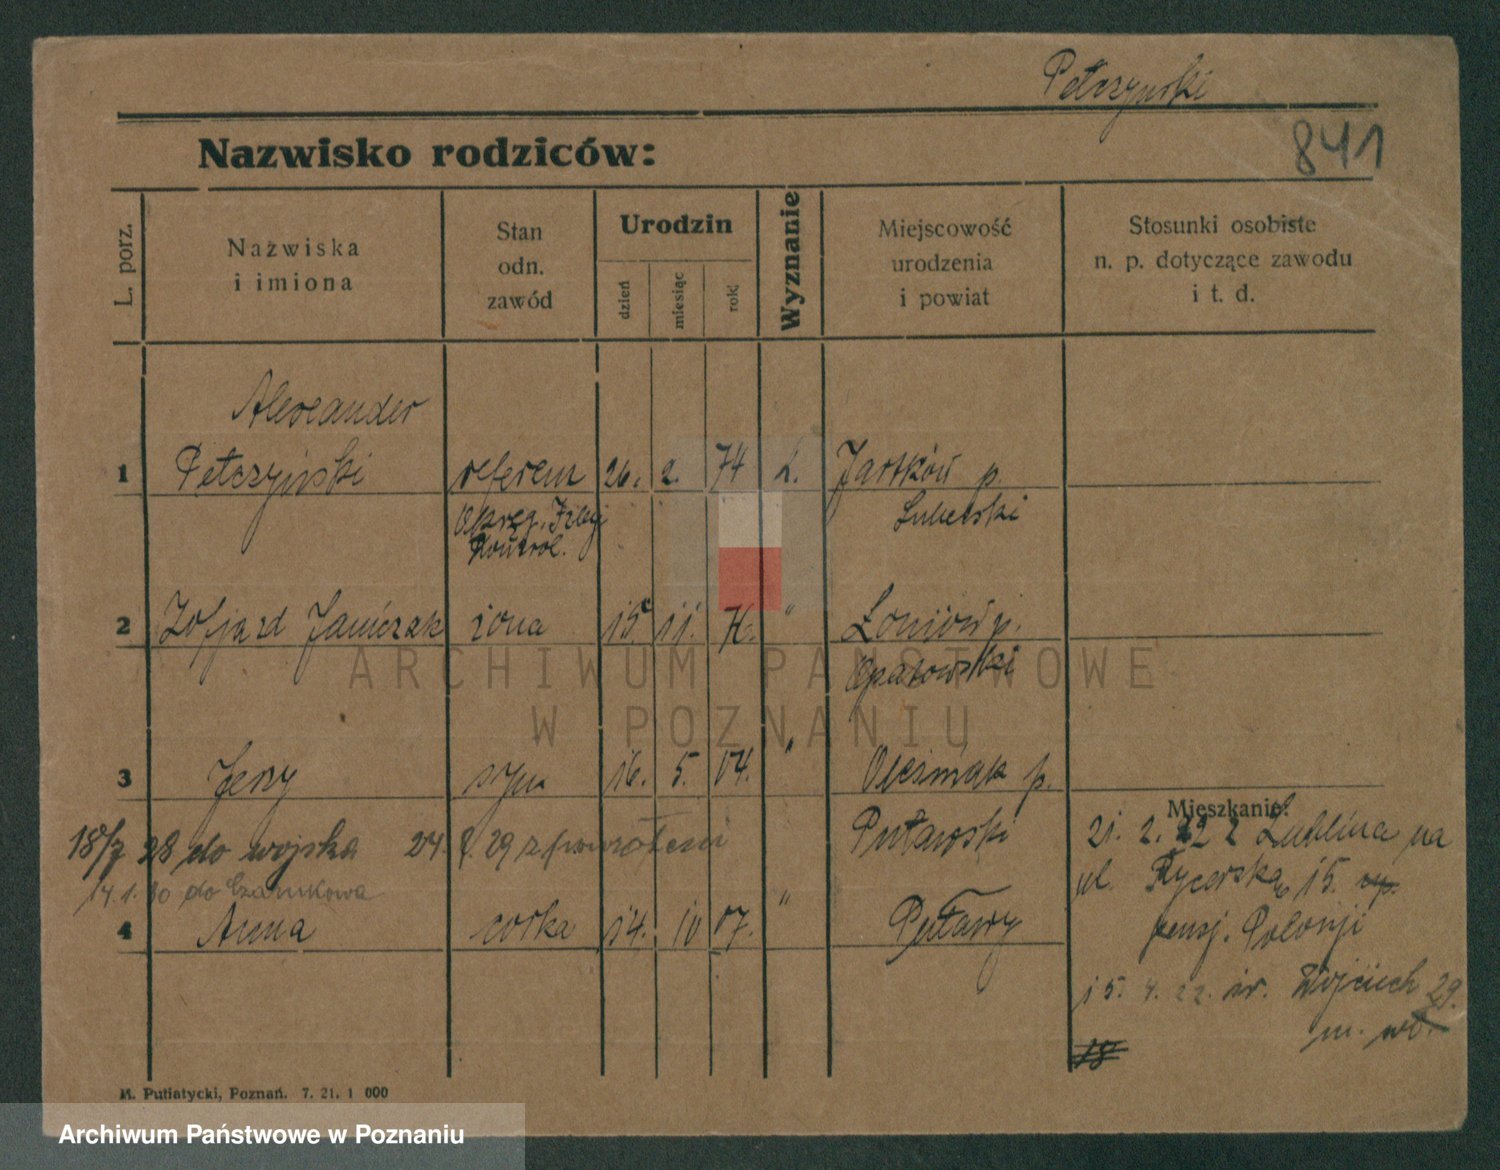 Pełczyński
841
Nazwisko rodziców:
L. porz.
Nazwiska
i imiona
Stan
odn.
zawód
Urodzin
dzień
miesiąc
rok
Wyznanie
Miejscowość
urodzenia
i powiat
Stosunki osobiste
n. p. dotyczące zawodu
i t. d.
Alexander
1 Pełczyński referen 26. 2. 74 k. p.
Okręg. Izby Lubelski
Kontrol.
2 Zofja zd Janiczak żona 15 11. 76. " Łoniów p.
Opatowski
3 Jerzy syn 16. 5. 04. " p.
Mieszkanie:
18/7 28 do wojska 24. 8. 29 z powrotem Puławski 21. 2. 22 z Lublina na
14. 1. 30 do Czarnkowa ul. Rycerska 15.
4 Anna córka 14. 10 07. " Puławy pensj. Polonji
15. 4. 22. św. Wojciech 29.
m. wł.
18
M. Putiatycki, Poznań. 7. 21. 1 000
ARCHIWUM PAŃSTWOWE
W POZNANIU
Archiwum Państwowe w Poznaniu